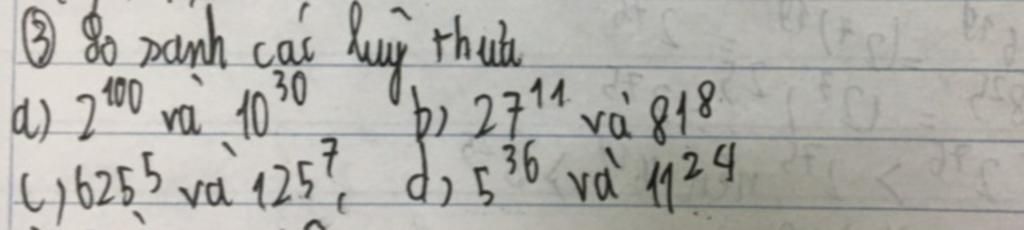 ③ So sánh các luỹ thừa
a) 2¹⁰⁰ và 10³⁰ b) 27¹¹ và 81⁸
c) 625⁵ và 125⁷; d) 5³⁶ và 11²⁴